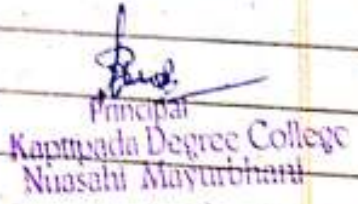 Principal
Kaptipada Degree College
Nuasahi Mayurbhanj